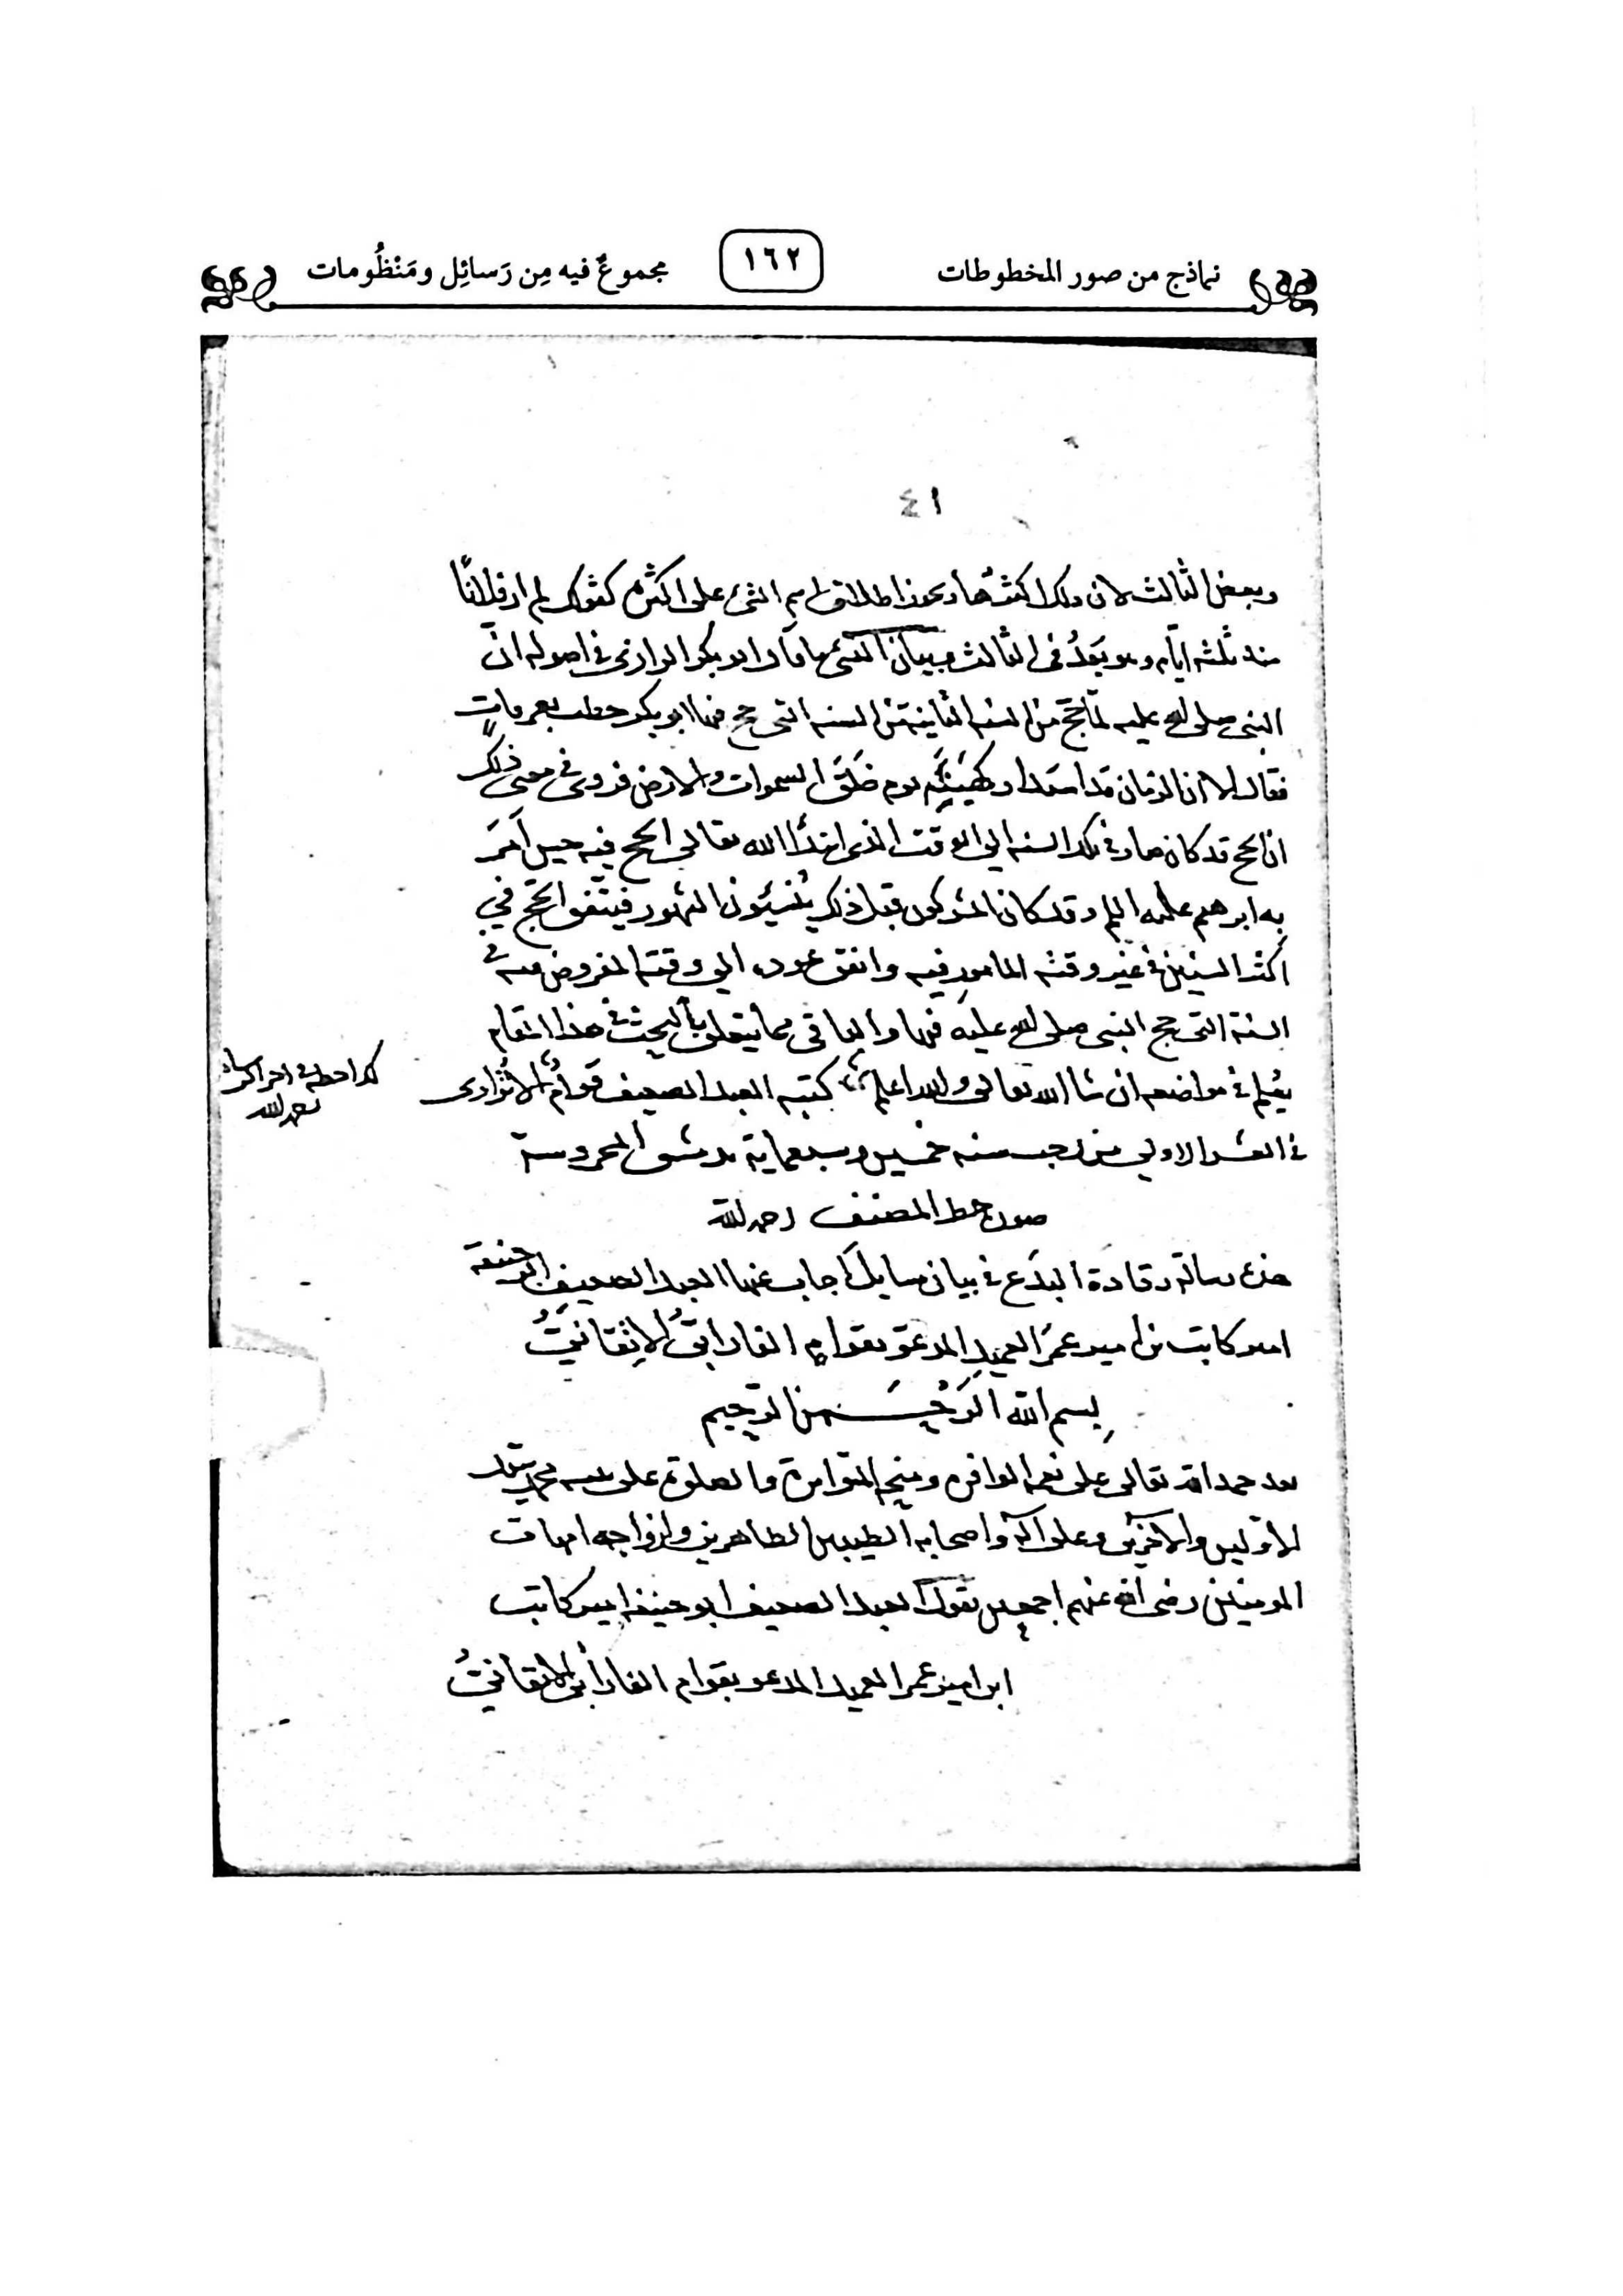 نماذج من صور المخطوطات
١٦٢
مجموعٌ فيه مِن رَسائِل ومَنْظُومات
٤١
وبعض الثالث لان ذلك اكثرها ويجوز اطلاق اسم الشئ على اكثره كقولك لم ار فلانًا
منذ ثلثه ايام وهو بَعدُ فى الثالث وبيان النسئ ما قال ابو بكر الرازى فى اصوله ان
النبى صلى الله عليه لما حج من السنه الثانية من السنه التى حج فيها ابو بكر خطب بعرفاتٍ
فقال الا ان الزمان قد استدار كهيئتِه يوم خَلَقَ السموات والارض فروى فى معنى ذلك
ان الحج قد كان عاد فى تلك السنه الى الوقت الذى ابتدأ الله تعالى الحج فيه حين اَمَرَ
به ابرهيم عليه السلم وقد كان المشركون قبل ذلك يُنسِئون الشهور فيتفق الحج في
اكثر السنين فى غير وقته المامور فيه واتفق عوده الى وقته المفروض فيه فى
السنة التى حج النبى صلى الله عليه فيها والباقى مما يتعلق بالبحث فى هذا المقام
يُعلم فى مواضعه ان شا الله تعالى والله اعلم كتبه العبد الضعيف قوامٌ الاترارى
كذا خطه فى اخر
رحمه الله
فى العشر الاولى من رجب سنه خمسين وسبعماية بدمشق المحروسة
صورة خط المصنف رحمه الله
هذه رسالة قادة البدَع فى بيان مسايل اَجاب عنها العبد الضعيف ابو حنيفة
امير كاتب بن امير عمرَ العميدِ المدعوّ بقوامٍ الفارابىُّ الاِتقانىُّ
بِسم الله الرَحْمن الرّحِيم
بعد حمد الله تعالى على نعمه الوافره ومنحِه المتواترة والصلوة على نبيه محمد سيّد
الاَوّلين والآخِرين وعلى آله واصحابه الطيبين الطاهرين وازواجه امهات
المومنين رضى الله عنهم اجمعين يقول العبد الضعيف ابو حنيفه امير كاتب
ابن امير عمر العميد المدعو بقوام الفارابُى الاتقانىُ